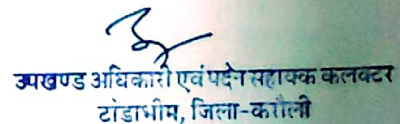 उपखण्ड अधिकारी एवं पदेन सहायक कलक्टर
टांडाभीम, जिला-करौली